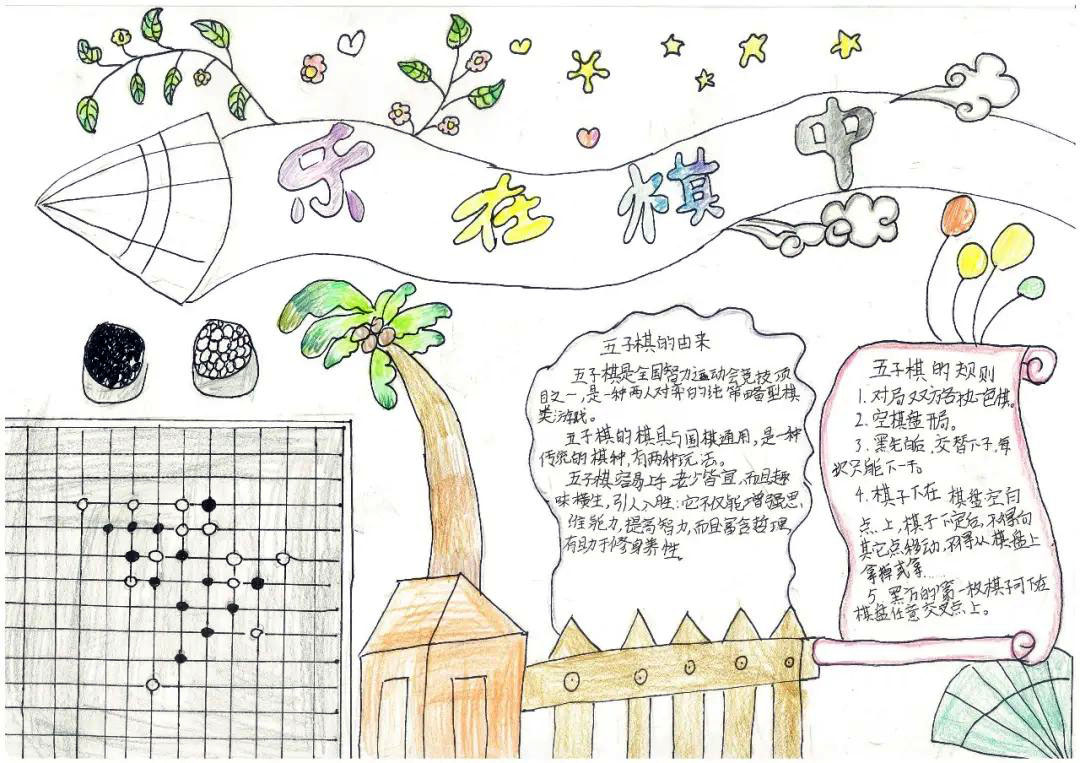 乐在棋中
五子棋的由来
五子棋是全国智力运动会竞技项
目之一,是一种两人对弈的纯策略型棋
类游戏。
五子棋的棋具与围棋通用,是一种
传统的棋种,有两种玩法。
五子棋容易上手,老少皆宜,而且趣
味横生,引人入胜;它不仅能增强思
维能力,提高智力,而且富含哲理,
有助于修身养性。
五子棋的规则
1.对局双方各执一色棋。
2.空棋盘开局。
3.黑先白后,交替下子,每
次只能下一子。
4.棋子下在棋盘空白
点上,棋子下定后,不得向
其它点移动,不得从棋盘上
拿掉或拿……
5.黑方的第一枚棋子可下在
棋盘任意交叉点上。